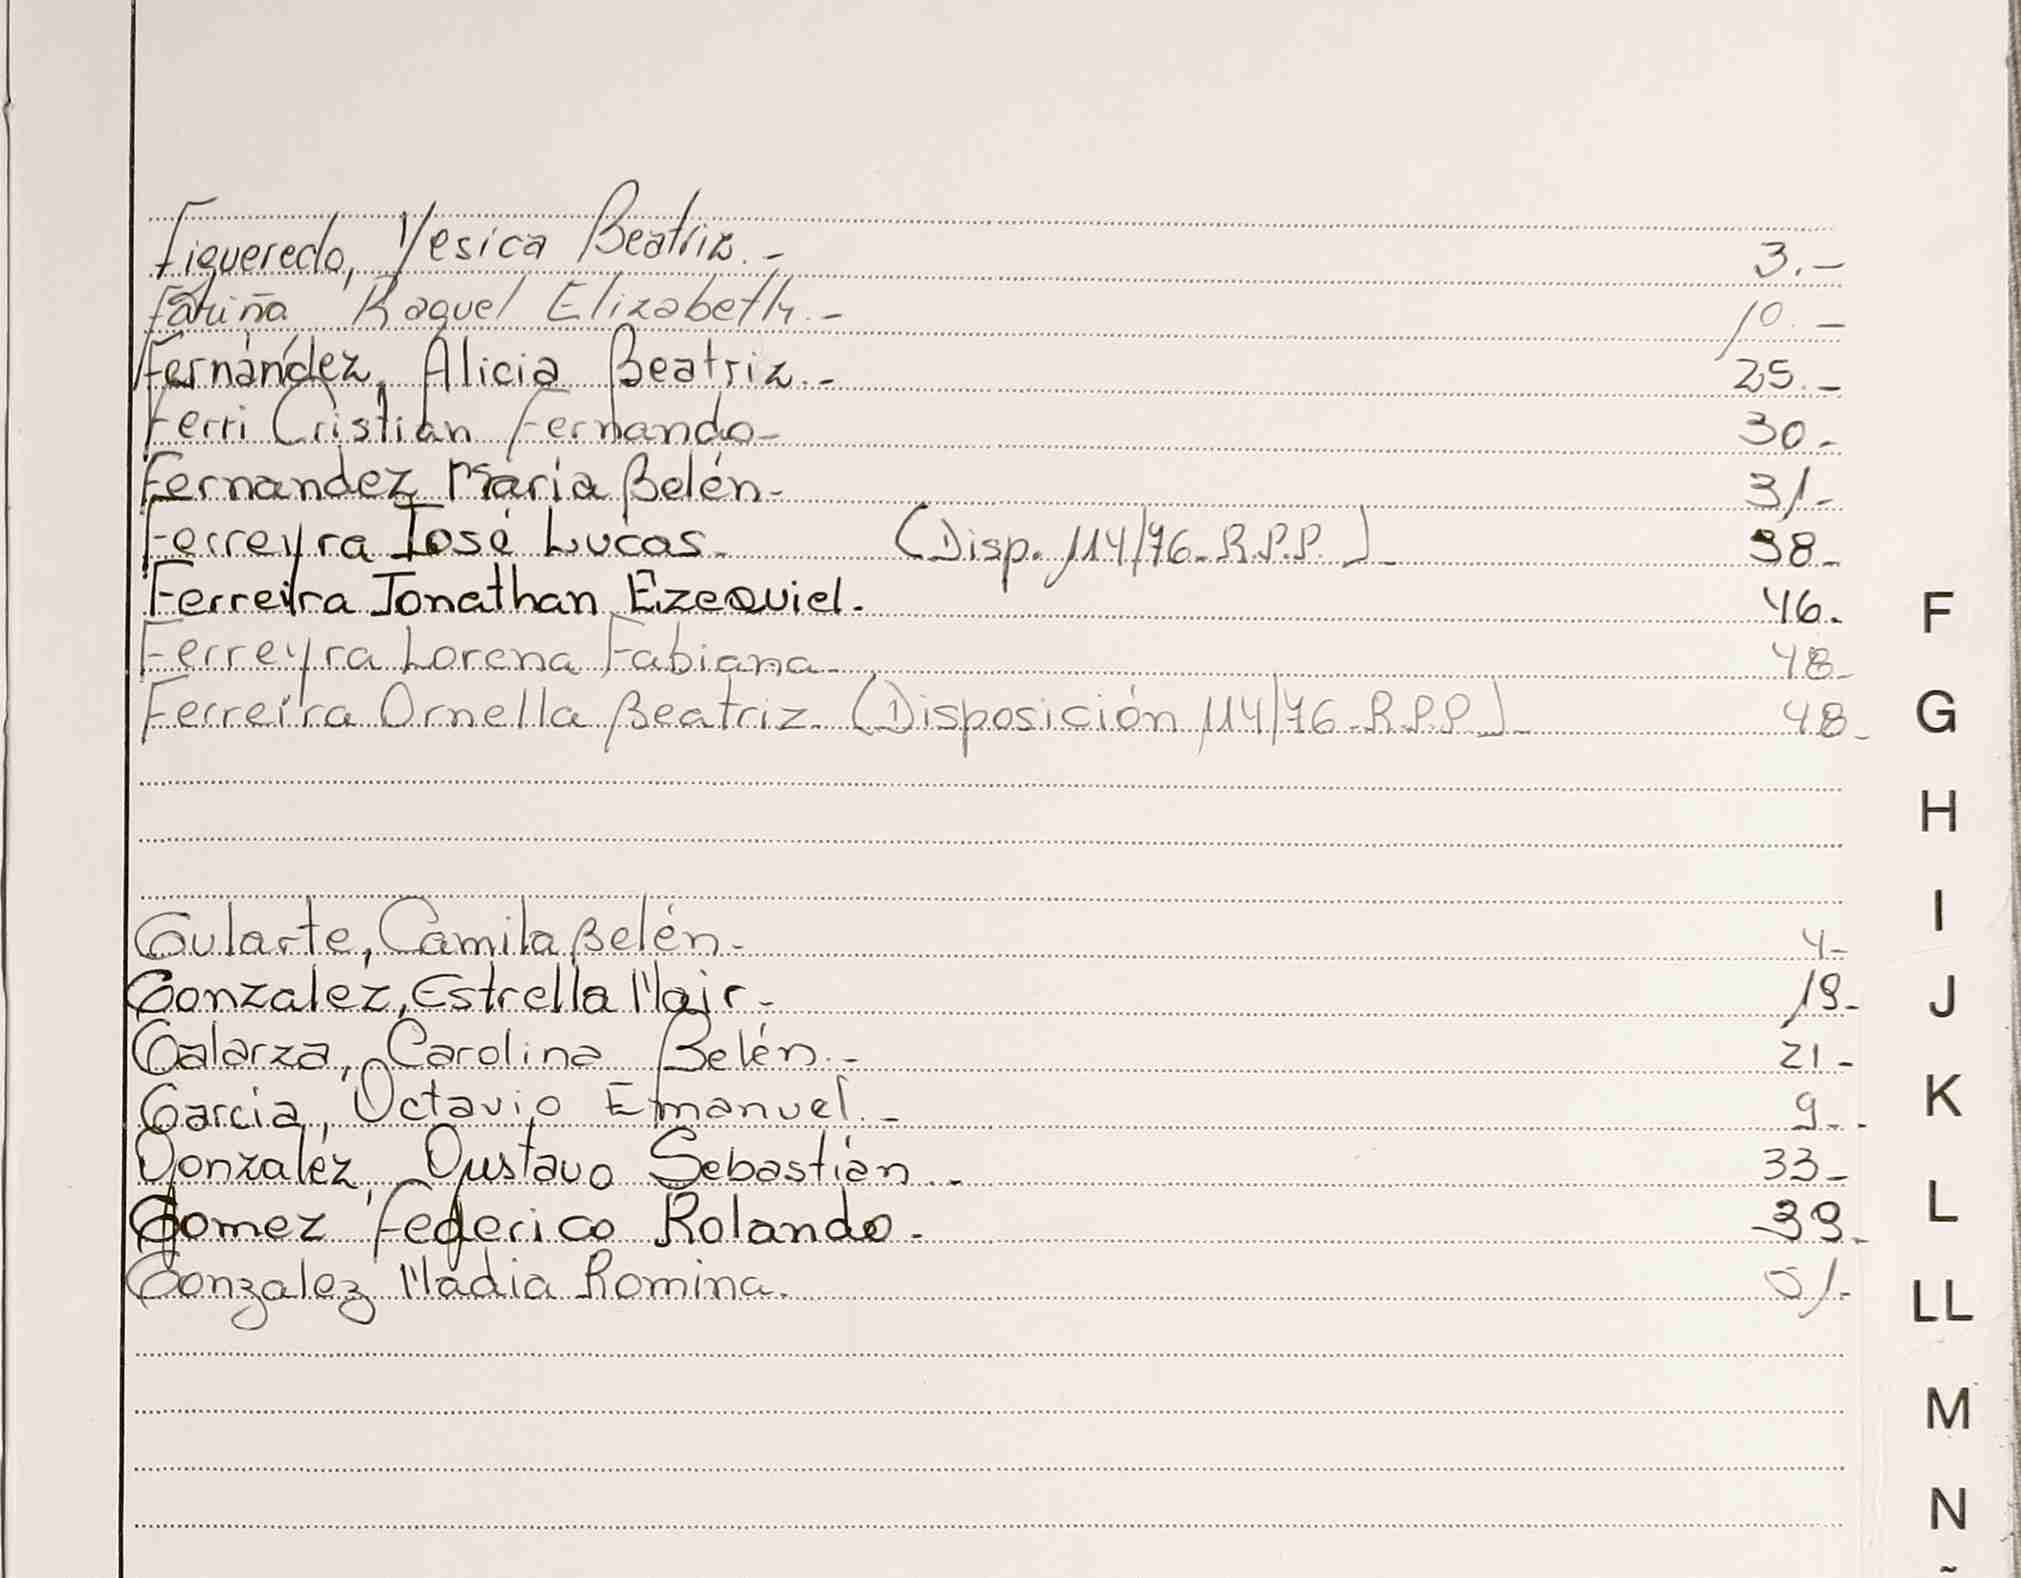 Figueredo, Yesica Beatriz.- 3.-
Fariña Raquel Elizabeth.- 10.-
Fernández, Alicia Beatriz.- 25.-
Ferri Cristian Fernando- 30-
Fernandez María Belén- 31-
Ferreyra José Lucas- (Disp. 114/76 R.P.P.)- 38-
Ferreira Jonathan Ezequiel. 46.
Ferreyra Lorena Fabiana- 48-
Ferreira Ornella Beatriz (Disposición 114/76 R.P.P)- 48-
Gularte, Camila Belén- 4-
Gonzalez, Estrella Nair- 19-
Galarza, Carolina Belén.- 21-
Garcia, Octavio Emanuel.- 9-
Gonzalez, Gustavo Sebastián.- 33-
Gomez Federico Rolando. 39-
Gonzalez Nadia Romina. 51-
F
G
H
I
J
K
L
LL
M
N